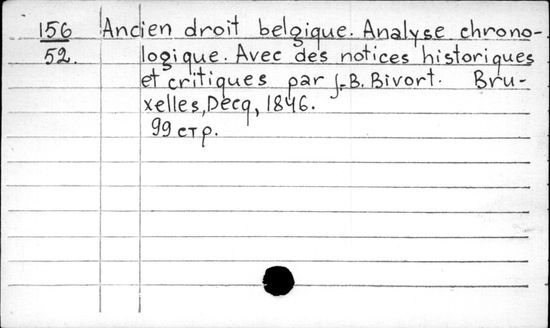 156 Ancien droit belgique. Analyse chrono-
52. logique. Avec des notices historiques
et critiques par J.-B. Bivort. Bru-
xelles, Decq, 1846.
99 стр.